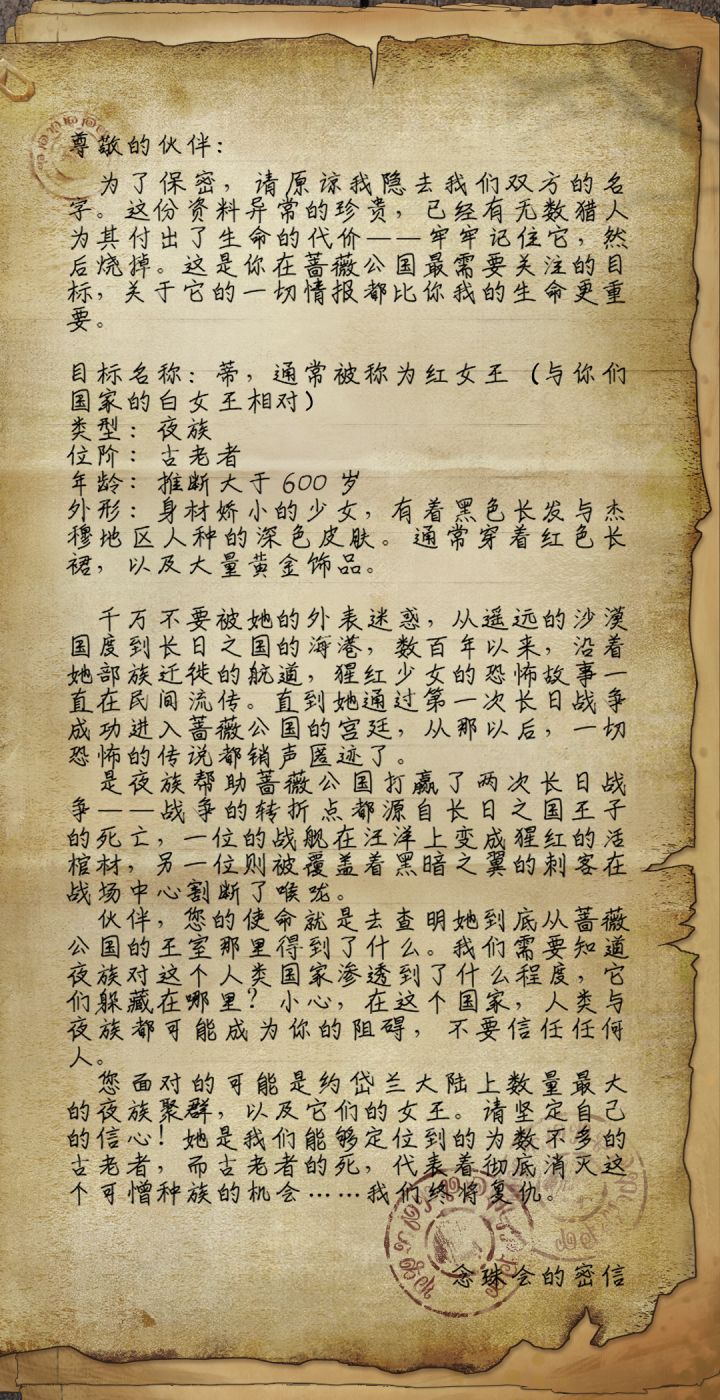 尊敬的伙伴：
为了保密，请原谅我隐去我们双方的名
字。这份资料异常的珍贵，已经有无数猎人
为其付出了生命的代价——牢牢记住它，然
后烧掉。这是你在蔷薇公国最需要关注的目
标，关于它的一切情报都比你我的生命更重
要。
目标名称：蒂，通常被称为红女王（与你们
国家的白女王相对）
类型：夜族
位阶：古老者
年龄：推断大于600岁
外形：身材娇小的少女，有着黑色长发与杰
穆地区人种的深色皮肤。通常穿着红色长
裙，以及大量黄金饰品。
千万不要被她的外表迷惑，从遥远的沙漠
国度到长日之国的海港，数百年以来，沿着
她部族迁徙的航道，猩红少女的恐怖故事一
直在民间流传。直到她通过第一次长日战争
成功进入蔷薇公国的宫廷，从那以后，一切
恐怖的传说都销声匿迹了。
是夜族帮助蔷薇公国打赢了两次长日战
争——战争的转折点都源自长日之国王子
的死亡，一位的战舰在汪洋上变成猩红的活
棺材，另一位则被覆盖着黑暗之翼的刺客在
战场中心割断了喉咙。
伙伴，您的使命就是去查明她到底从蔷薇
公国的王室那里得到了什么。我们需要知道
夜族对这个人类国家渗透到了什么程度，它
们躲藏在哪里？小心，在这个国家，人类与
夜族都可能成为你的阻碍，不要信任任何
人。
您面对的可能是约岱兰大陆上数量最大
的夜族聚群，以及它们的女王。请坚定自己
的信心！她是我们能够定位到的为数不多的
古老者，而古老者的死，代表着彻底消灭这
个可憎种族的机会……我们终将复仇。
念珠会的密信